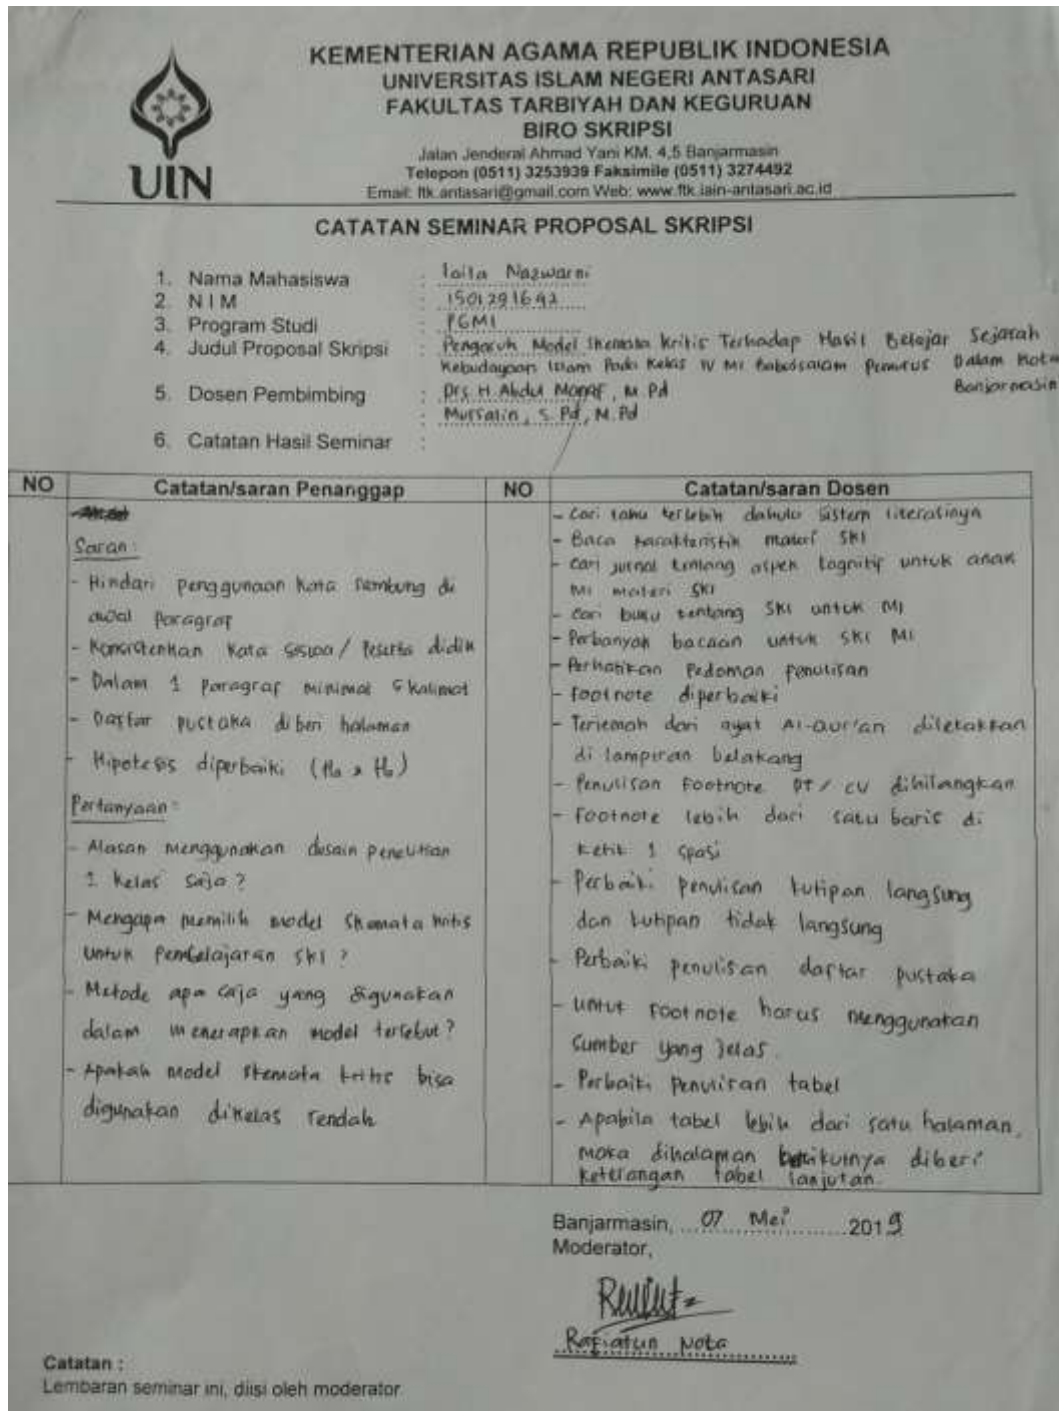 KEMENTERIAN AGAMA REPUBLIK INDONESIA
UNIVERSITAS ISLAM NEGERI ANTASARI
FAKULTAS TARBIYAH DAN KEGURUAN
BIRO SKRIPSI
Jalan Jenderal Ahmad Yani KM. 4,5 Banjarmasin
Telepon (0511) 3253939 Faksimile (0511) 3274492
Email: ftk.antasari@gmail.com Web: www.ftk.iain-antasari.ac.id
UIN
CATATAN SEMINAR PROPOSAL SKRIPSI
1. Nama Mahasiswa : Laila Nazwarni
2. N I M : 1501291692
3. Program Studi : PGMI
4. Judul Proposal Skripsi : Pengaruh Model Skemata Kritis Terhadap Hasil Belajar Sejarah
Kebudayaan Islam Pada Kelas IV MI Pemurus Dalam Kota
Banjarmasin
5. Dosen Pembimbing : Drs. H. Abdul Manaf, M.Pd
Mursalin, S.Pd, M.Pd
6. Catatan Hasil Seminar :
NO Catatan/saran Penanggap
Saran :
- Hindari penggunaan kata sambung di
awal paragraf
- Konsistenkan kata siswa / Peserta didik
- Dalam 1 paragraf minimal 5 kalimat
- Daftar pustaka diberi halaman
- Hipotesis diperbaiki
Pertanyaan :
- Alasan menggunakan desain penelitian
1 kelas saja ?
- Mengapa memilih model skemata kritis
untuk Pembelajaran SKI ?
- Metode apa saja yang digunakan
dalam menerapkan model tersebut ?
- Apakah model skemata kritis bisa
digunakan dikelas rendah
NO Catatan/saran Dosen
- Cari tahu terlebih dahulu sistem literasinya
- Baca karakteristik materi SKI
- Cari jurnal tentang aspek kognitif untuk anak
MI materi SKI
- Cari buku tentang SKI untuk MI
- Perbanyak bacaan untuk SKI MI
- Perhatikan Pedoman Penulisan
- footnote diperbaiki
- Terjemah dari ayat Al-Qur'an diletakkan
di lampiran belakang
- Penulisan Footnote PT / CV dihilangkan
- Footnote lebih dari satu baris di
ketik 1 spasi
- Perbaiki penulisan kutipan langsung
dan kutipan tidak langsung
- Perbaiki penulisan daftar pustaka
- Untuk footnote harus menggunakan
sumber yang jelas.
- Perbaiki penulisan tabel
- Apabila tabel lebih dari satu halaman,
maka dihalaman berikutnya diberi
keterangan tabel lanjutan.
Banjarmasin, 07 Mei 2019
Moderator,
Rafiatun Nota
Catatan :
Lembaran seminar ini, diisi oleh moderator